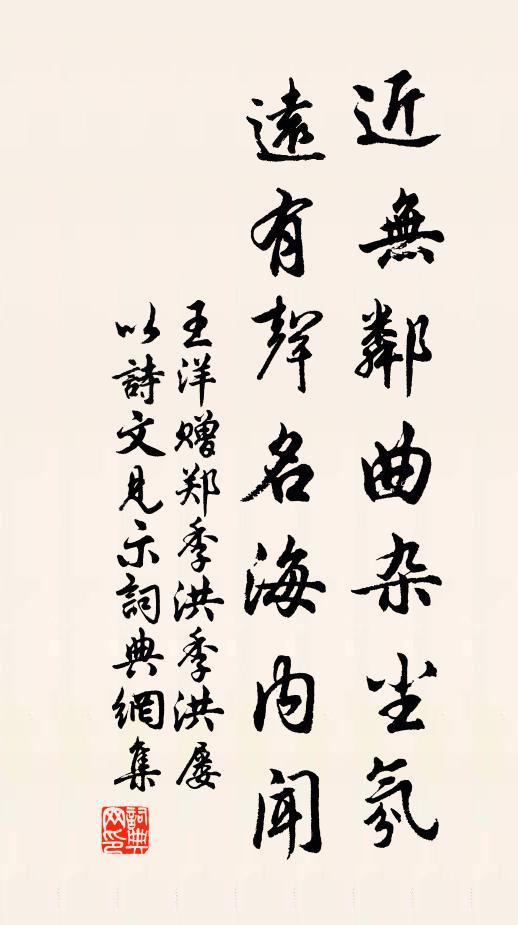 近無鄰曲杂尘氛
遠有聲名海内闻
王洋赠郑季洪季洪屡
以詩文見示詞典網集
詞典
网印